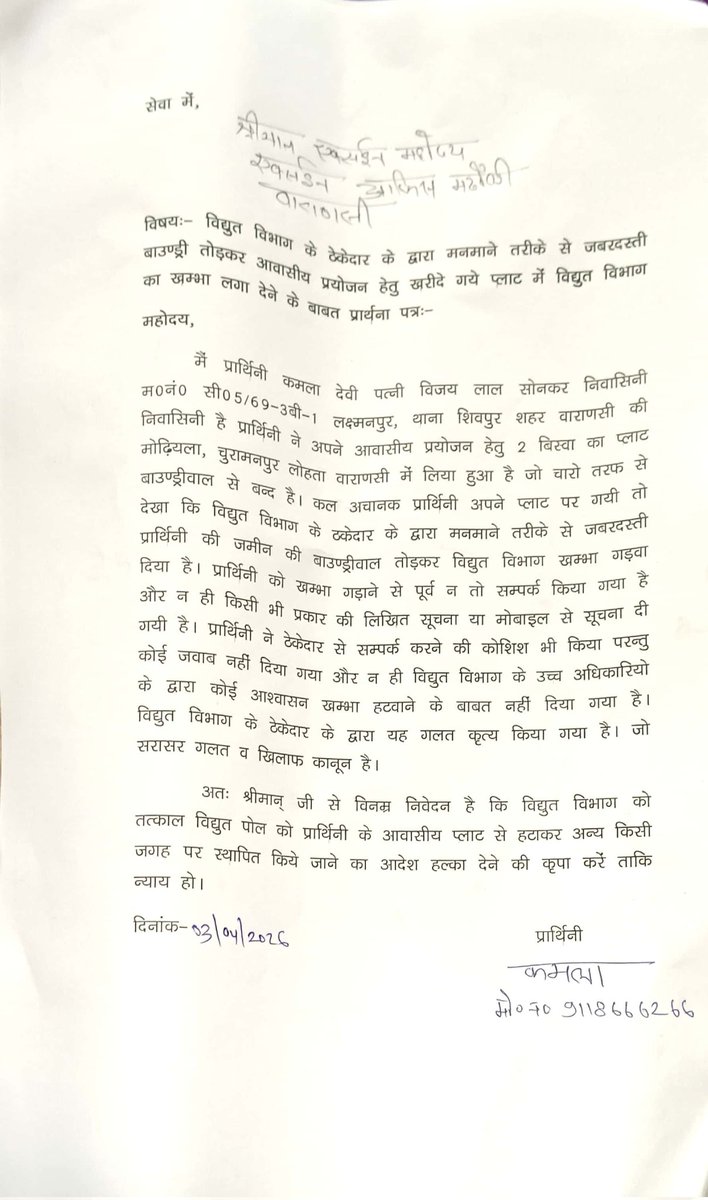 सेवा में,
श्रीमान एक्सईन महोदय
एक्सईन आफिस मढ़ौली
वाराणसी
विषयः- विद्युत विभाग के ठेकेदार के द्वारा मनमाने तरीके से जबरदस्ती
बाउण्ड्री तोड़कर आवासीय प्रयोजन हेतु खरीदे गये प्लाट में विद्युत विभाग
का खम्भा लगा देने के बाबत प्रार्थना पत्रः-
महोदय,
मैं प्रार्थिनी कमला देवी पत्नी विजय लाल सोनकर निवासिनी
म0नं0 सी05/69-3बी-1 लक्ष्मनपुर, थाना शिवपुर शहर वाराणसी की
निवासिनी है प्रार्थिनी ने अपने आवासीय प्रयोजन हेतु 2 बिस्वा का प्लाट
मोढ़ियला, चुरामनपुर लोहता वाराणसी में लिया हुआ है जो चारो तरफ से
बाउण्ड्रीवाल से बन्द है। कल अचानक प्रार्थिनी अपने प्लाट पर गयी तो
देखा कि विद्युत विभाग के ठेकेदार के द्वारा मनमाने तरीके से जबरदस्ती
प्रार्थिनी की जमीन की बाउण्ड्रीवाल तोड़कर विद्युत विभाग खम्भा गड़वा
दिया है। प्रार्थिनी को खम्भा गड़ाने से पूर्व न तो सम्पर्क किया गया है
और न ही किसी भी प्रकार की लिखित सूचना या मोबाइल से सूचना दी
गयी है। प्रार्थिनी ने ठेकेदार से सम्पर्क करने की कोशिश भी किया परन्तु
कोई जवाब नहीं दिया गया और न ही विद्युत विभाग के उच्च अधिकारियो
के द्वारा कोई आश्वासन खम्भा हटवाने के बाबत नहीं दिया गया है।
विद्युत विभाग के ठेकेदार के द्वारा यह गलत कृत्य किया गया है। जो
सरासर गलत व खिलाफ कानून है।
अतः श्रीमान् जी से विनम्र निवेदन है कि विद्युत विभाग को
तत्काल विद्युत पोल को प्रार्थिनी के आवासीय प्लाट से हटाकर अन्य किसी
जगह पर स्थापित किये जाने का आदेश हल्का देने की कृपा करें ताकि
न्याय हो।
दिनांक-03/04/2026
प्रार्थिनी
कमला
मो0 न0 9118666266